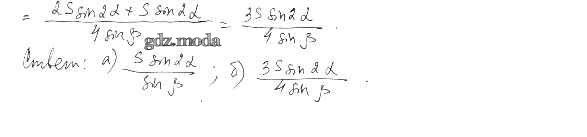 = (2S sin 2α + S sin 2α) / (4 sin β) = 3S sin 2α / (4 sin β).
gdz.moda
Ответ: а) S sin 2α / sin β; б) 3S sin 2α / (4 sin β).